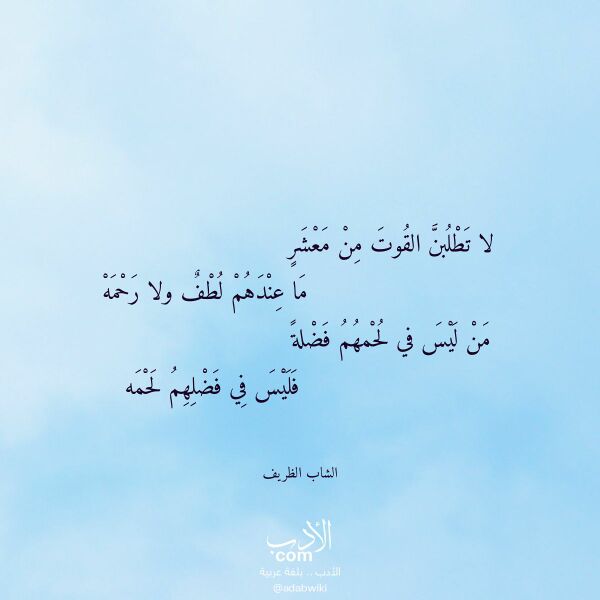 لا تَطْلُبنَّ القُوتَ مِنْ مَعْشَرٍ
مَا عِنْدَهُمْ لُطْفٌ ولا رَحْمَهْ
مَنْ لَيْسَ في لُحْمهُمُ فَضْلةً
فَلَيْسَ فِي فَضْلِهِمُ لَحْمَه
الشاب الظريف
الأدب
.com
الأدب .. بلغة عربية
@adabwiki